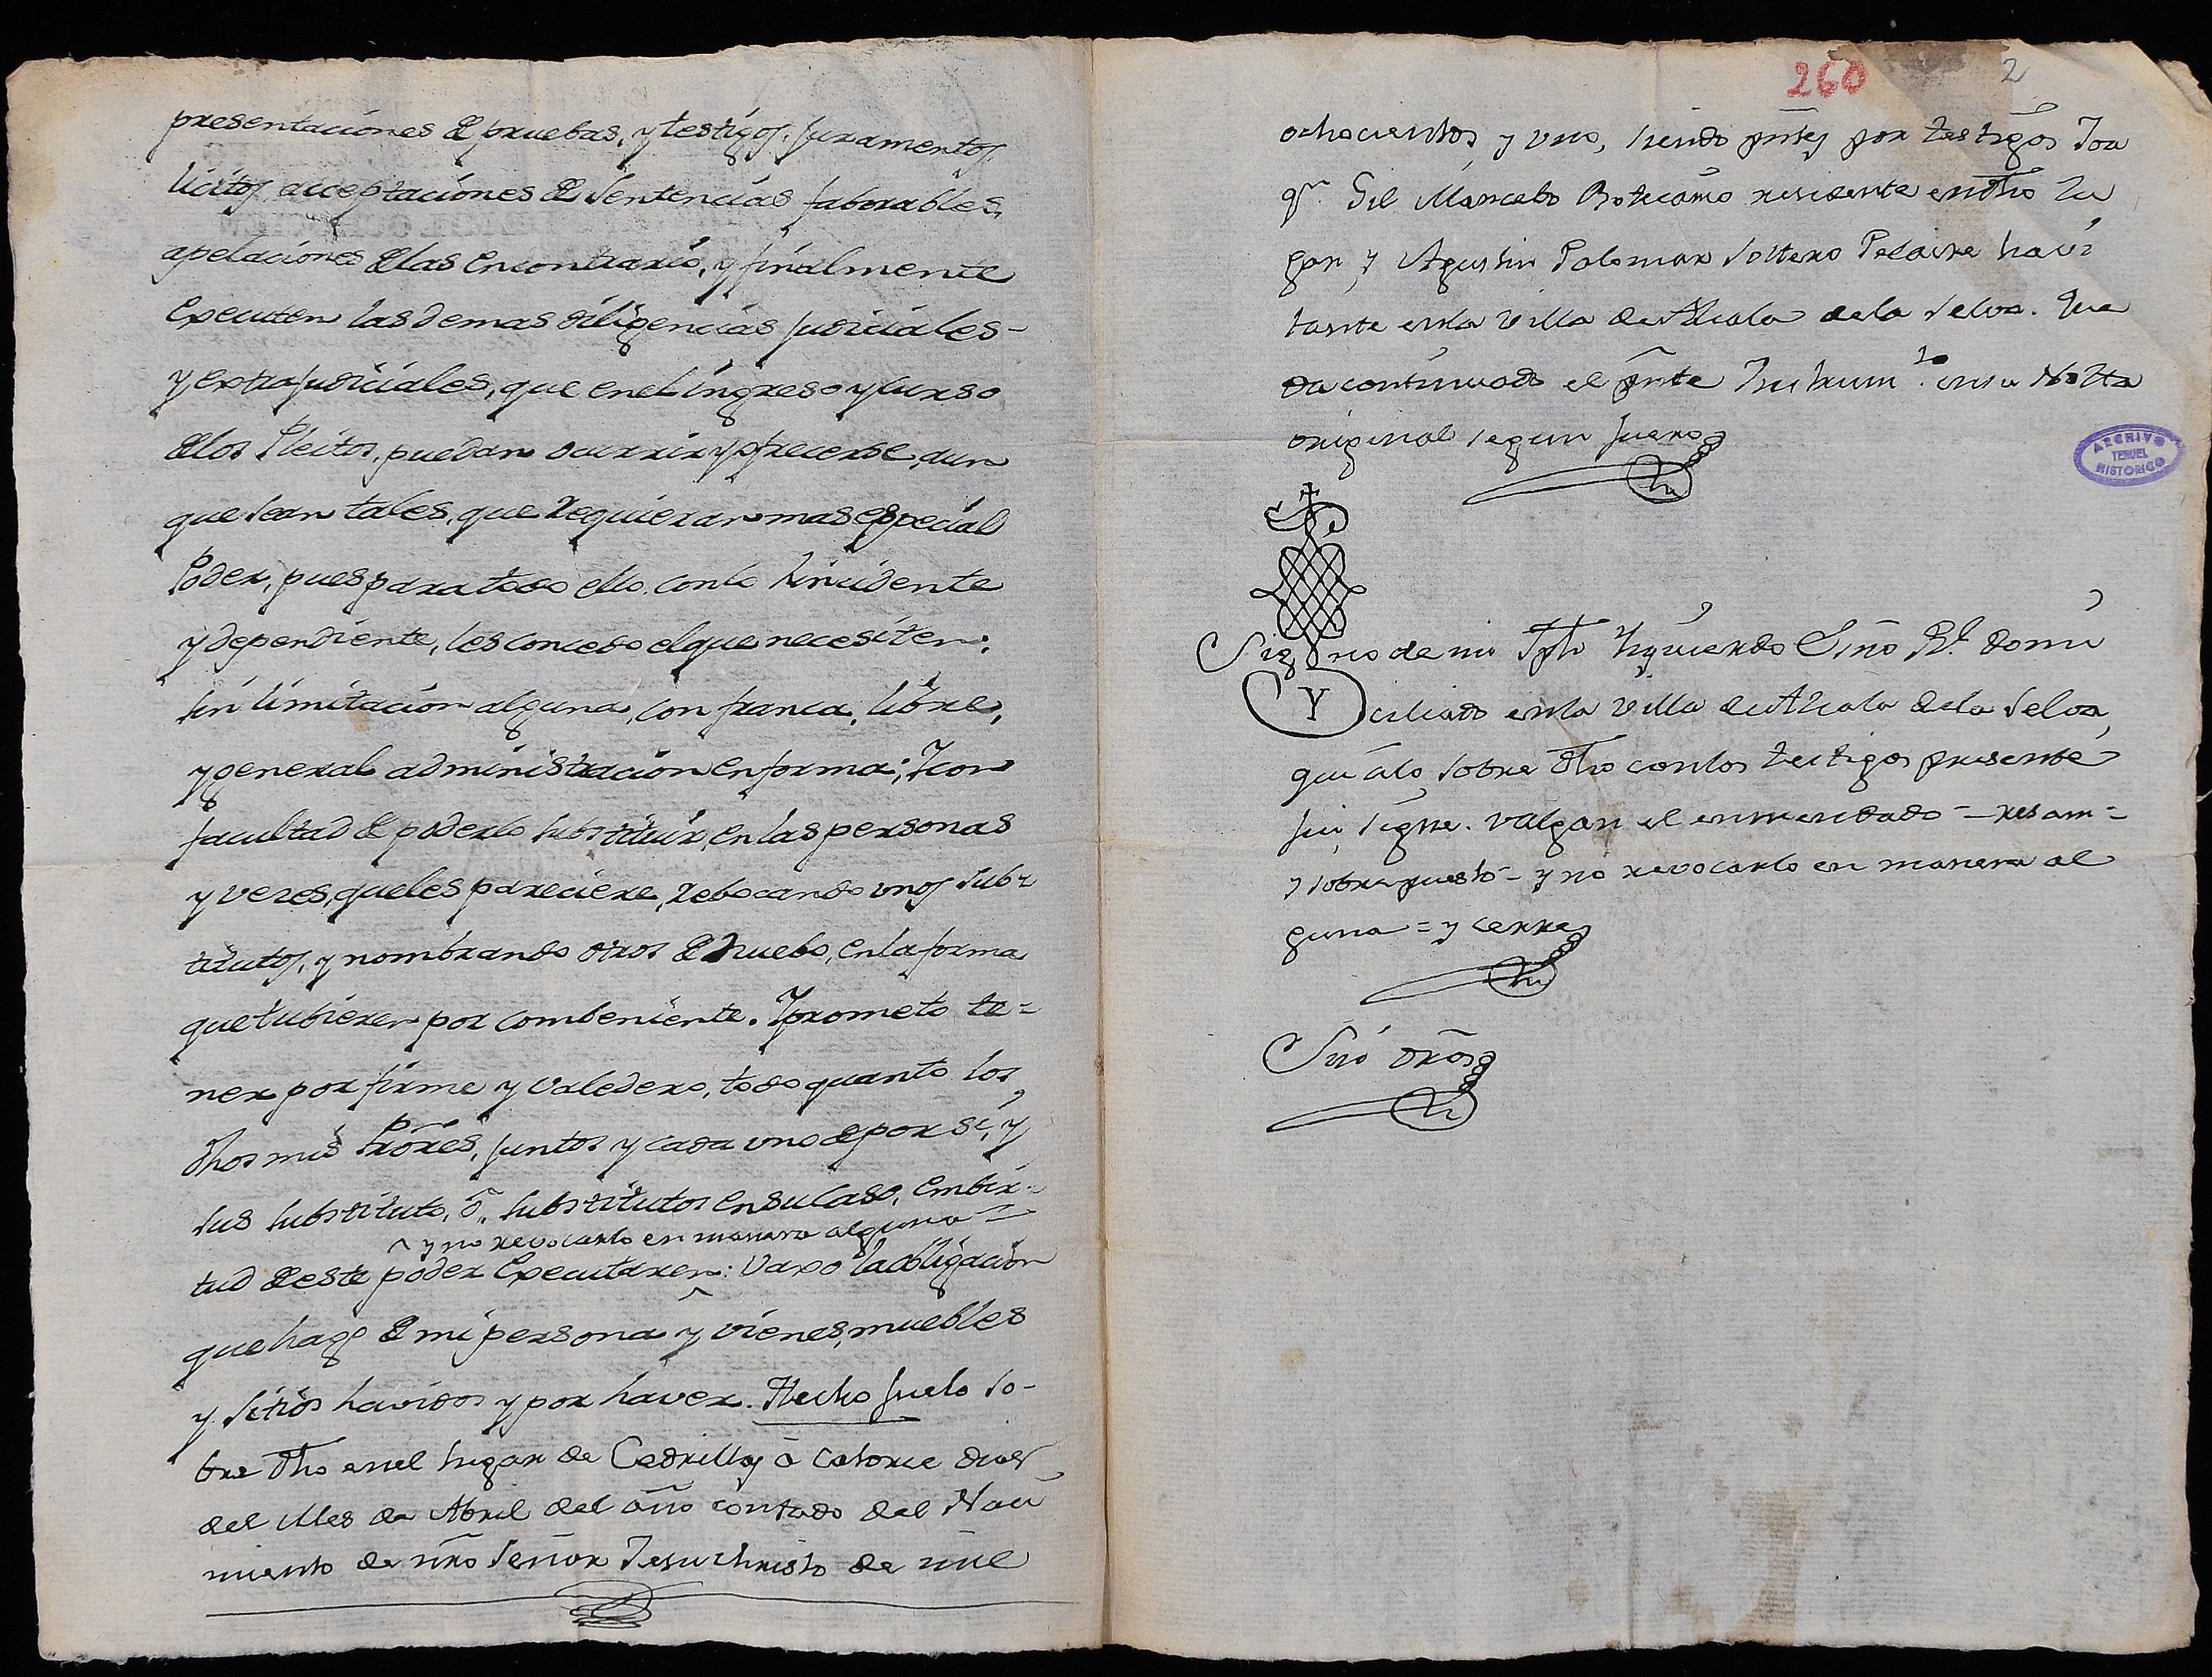 presentaciones de pruebas, y testigos, juramentos,
licitos, acceptaciones de Sentencias faborables,
apelaciones de las en contrario, y finalmente
Executen las demas diligencias judiciales-
y extrajudiciales, que en el ingreso y curso
de los Pleitos, puedan ocurrir y ofrecerse, aun
que sean tales, que requieran mas especial
Poder, pues para todo ello, con lo incidente
y dependiente, les concedo el que necesiten;
sin limitacion alguna, con franca, libre,
y general administracion en forma; Y con
facultad de poderlo substituir, en las personas
y vezes, que les pareciere, rebocando unos subs-
titutos, y nombrando otros de nuebo, en la forma
que tubieren por combeniente. Y prometo te=
ner por firme y valedero, todo quanto los
dhos mis Prõres, juntos y cada uno de por sí, y
sus substituto, ô, substitutos en su caso, en bir-
^ y no revocarlo en manera alguna =
tud de este poder Executaren: Vaxo la obligacion
que hago de mi persona y vienes, muebles
y sitios havidos y por haver. Hecho fue lo so-
bre dho en el lugar de Cedrillas à catorce dias
del Mes de Abril del año contado del Naci
miento de nro Señor Jesuchristo de mil
260 2
ochocientos, y uno, siendo pntes por testigos Joa
qn. Gil Mancebo Boticario residente en dho Lu
gar, y Agustin Palomar soltero Pelaire havi
tante en la Villa de Alcala de la Selva. Que
da continuado el pnte Instrum.to en su Notta
original segun fuero
ARCHIVO
TERUEL
HISTORICO
Signo de mi Jph Izquierdo Ssno Rl. domi
Y ciliado en la Villa de Alcala de la Selva,
que à lo sobre dho con los testigos presente
fui, signe. Valgan el enmendado - resam =
y sobrepuesto - y no revocarlo en manera al
guna = y cerre